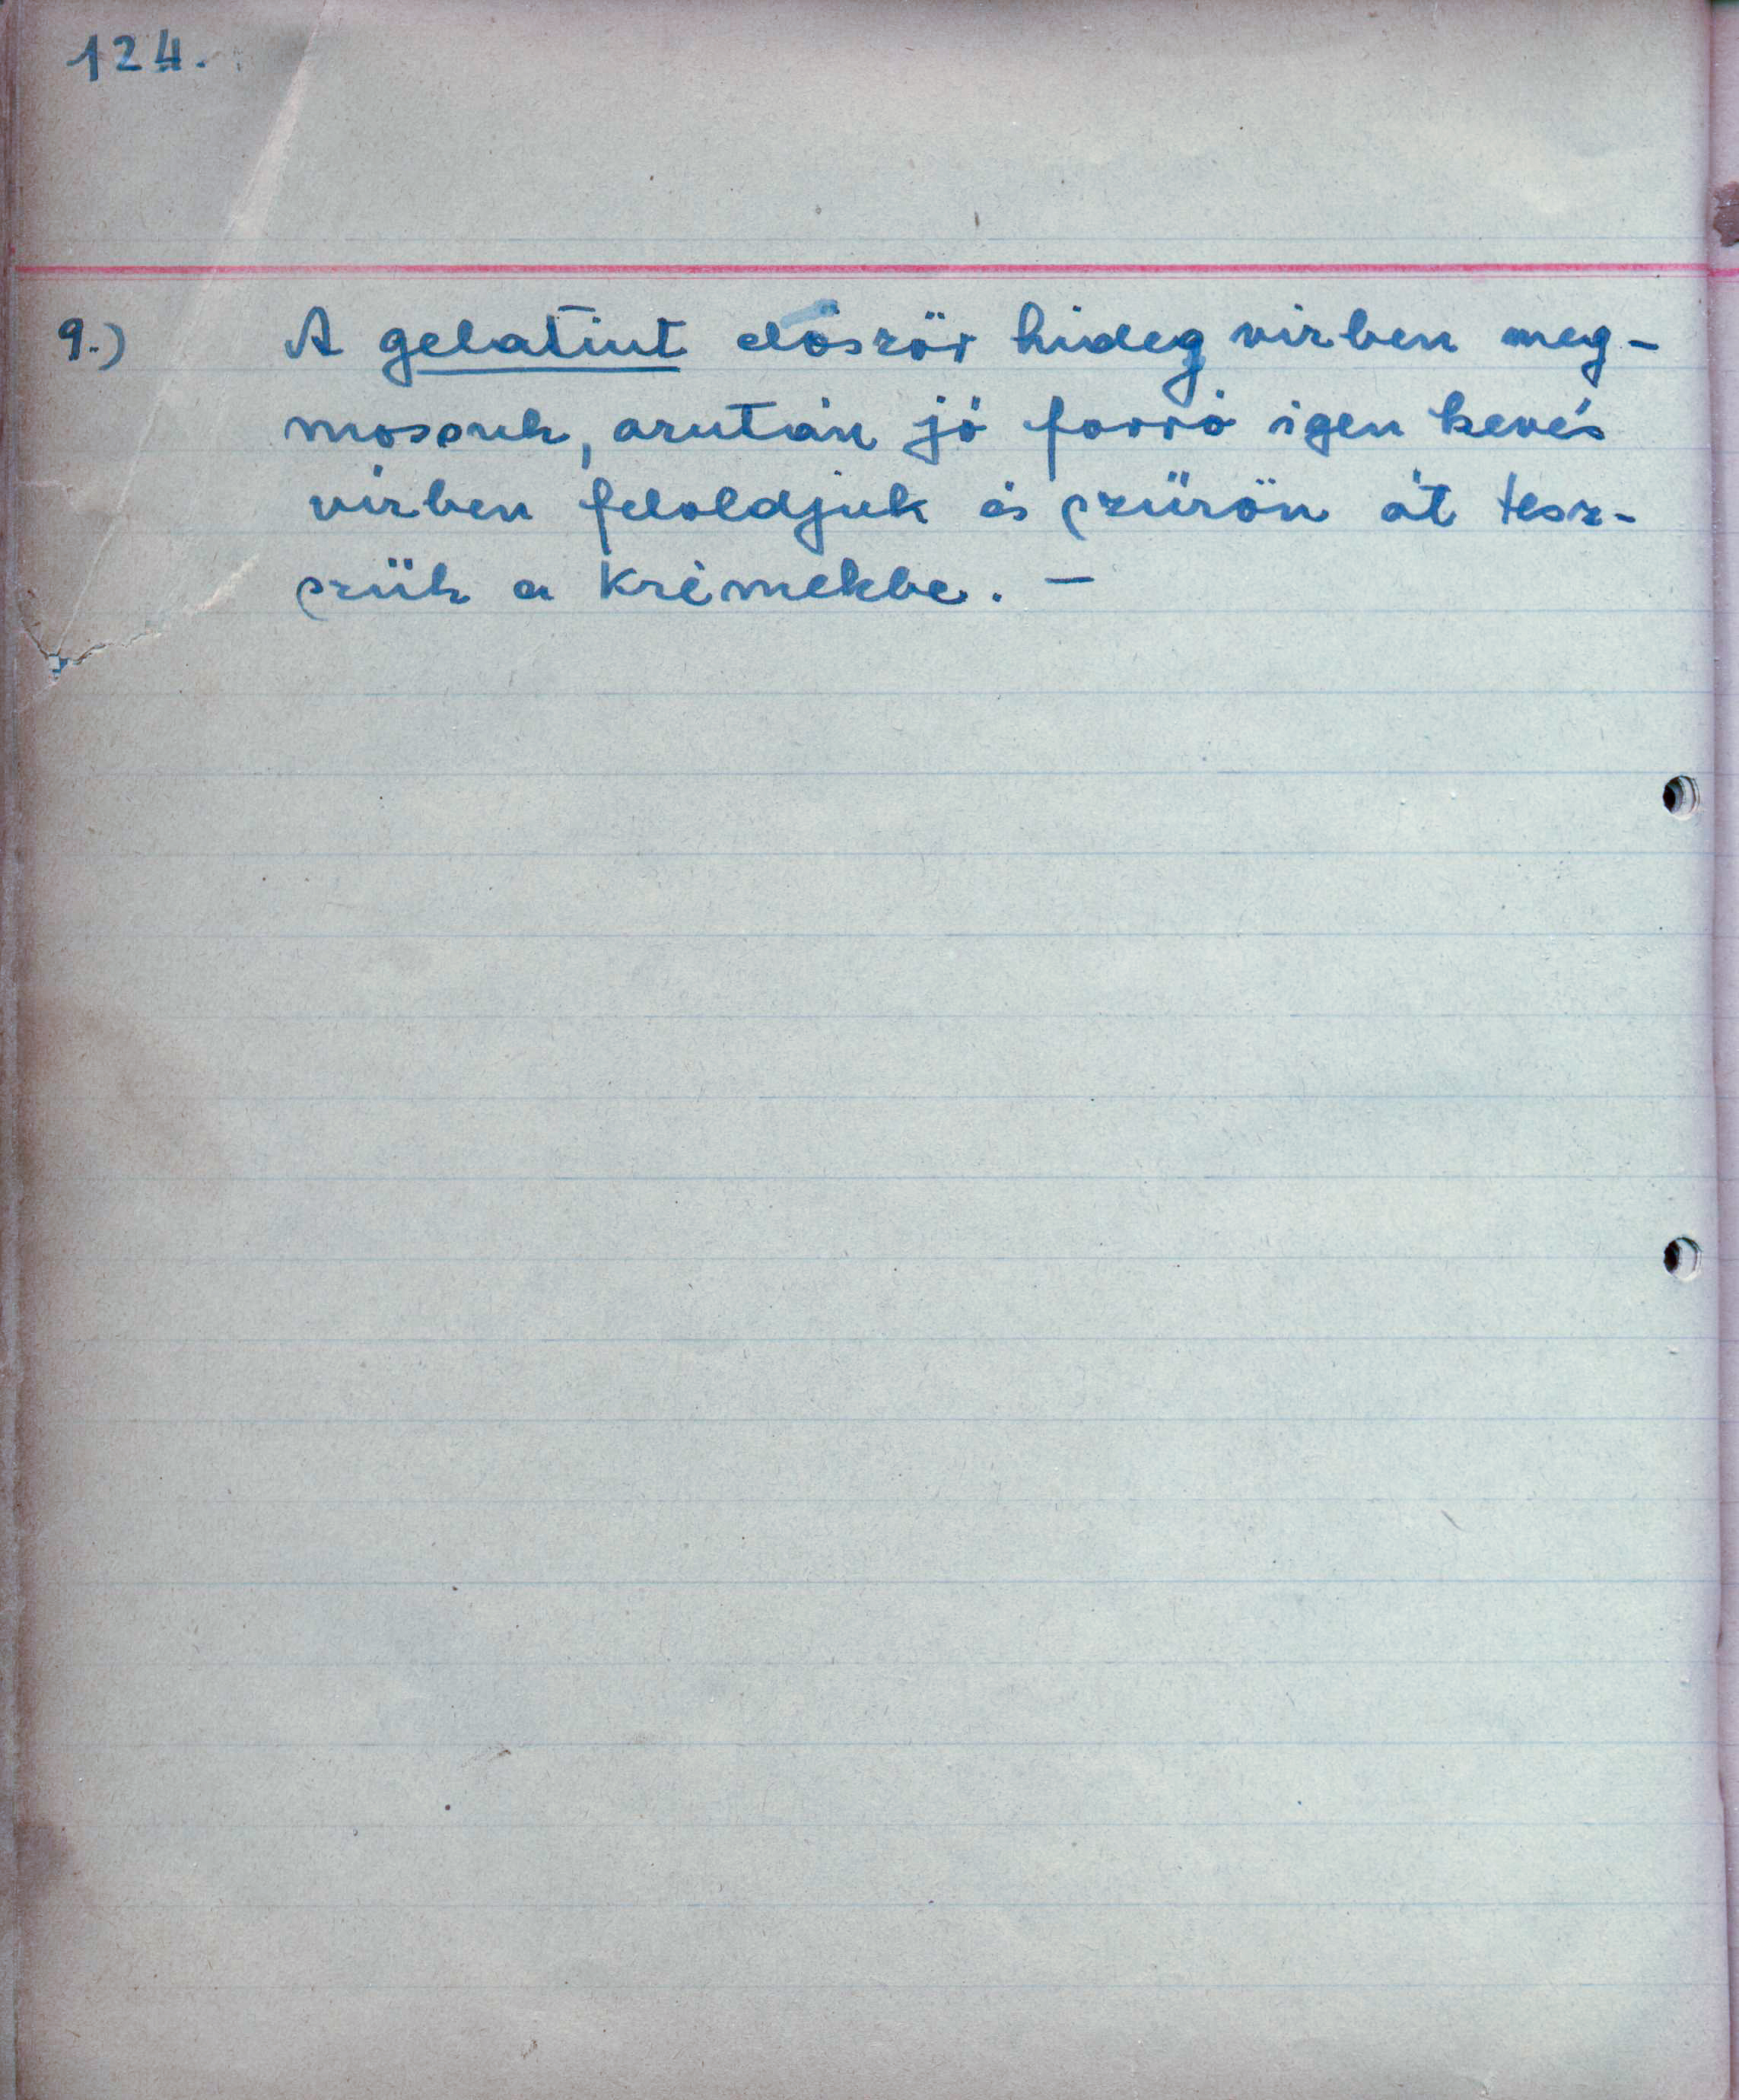 124.
9.) A gelatint először hideg vízben meg-
mossuk, azután jó forró igen kevés
vízben feloldjuk és szürön át tesz-
szük a krémekbe. —